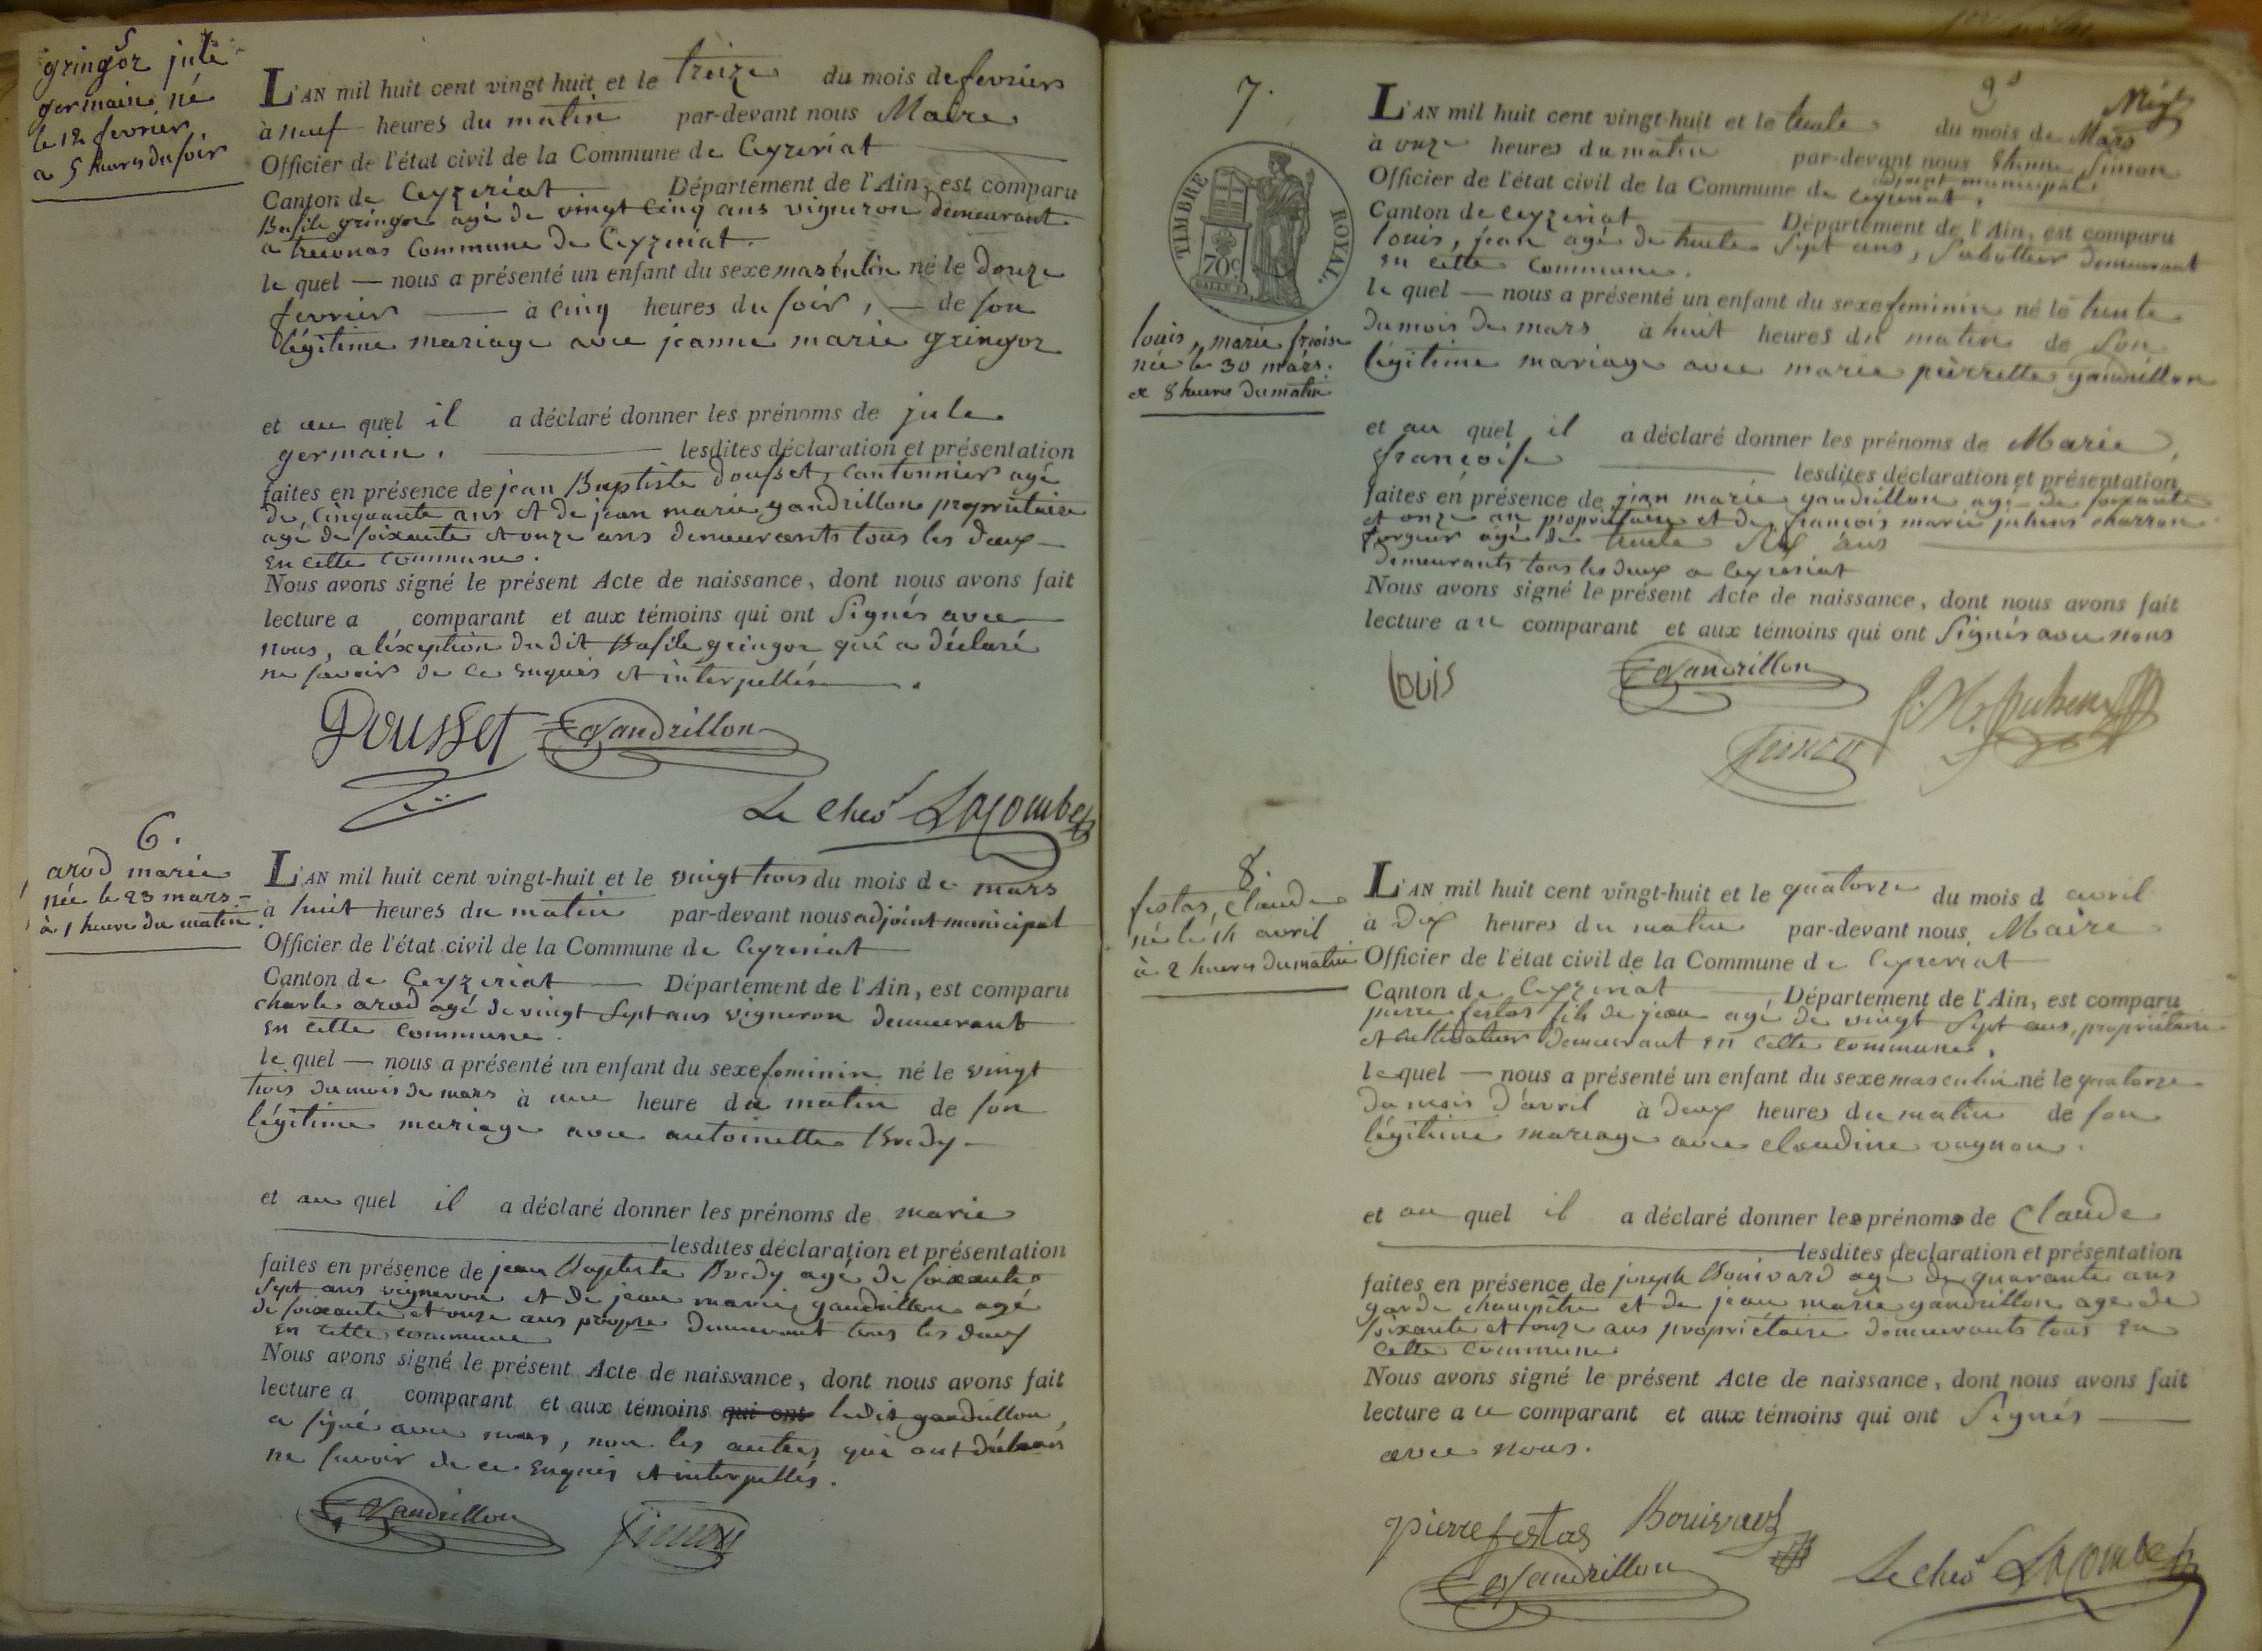 5
gringoz jule
germain, né
le 12 fevrier
a 5 heures du soir
L'AN mil huit cent vingt huit et le treize du mois de fevrier
à neuf heures du matin par-devant nous Maire
Officier de l'état civil de la Commune de Ceyzeriat
Canton de Ceyzeriat Département de l'Ain, est comparu
Basile gringoz agé de vingt cinq ans vigneron demeurant
a treconas Commune de Ceyzeriat.
le quel — nous a présenté un enfant du sexe masculin né le douze
fevrier à cinq heures du soir, — de son
légitime mariage avec jeanne marie gringoz
et au quel il a déclaré donner les prénoms de jule
germain. lesdites déclaration et présentation
faites en présence de jean Baptiste dousset, cantonnier agé
de cinquante ans et de jean marie gandrillon propriétaire
agé de soixante et onze ans demeurants tous les deux
en cette commune.
Nous avons signé le présent Acte de naissance, dont nous avons fait
lecture a comparant et aux témoins qui ont signés avec
nous, a l'éxception du dit Basile gringoz qui a déclaré
ne savoir de ce enquis et interpellés.
Dousset Gandrillon
Le Cher Lacombe
6.
arod marie
née le 23 mars
à 1 heure du matin
L'AN mil huit cent vingt-huit et le vingt trois du mois de mars
à huit heures du matin par-devant nous adjoint municipal
Officier de l'état civil de la Commune de Ceyzeriat
Canton de Ceyzeriat Département de l'Ain, est comparu
charle arod agé de vingt sept ans vigneron demeurant
en cette commune.
le quel — nous a présenté un enfant du sexe feminin né le vingt
trois du mois de mars à une heure du matin de son
légitime mariage avec antoinette Bredy
et au quel il a déclaré donner les prénoms de marie
lesdites déclaration et présentation
faites en présence de jean Baptiste Bredy agé de soixante
sept ans vigneron et de jean marie gandrillon agé
de soixante et onze ans propre demeurant tous les deux
en cette commune
Nous avons signé le présent Acte de naissance, dont nous avons fait
lecture a comparant et aux témoins qui ont ledit gandrillon,
a signé avec nous, non les autres qui ont déclarés
ne savoir de ce enquis et interpellés.
Gandrillon Simon
7.
TIMBRE ROYAL.
70c
louis, marie froise
née le 30 mars.
a 8 heures du matin
L'AN mil huit cent vingt-huit et le trente du mois de Mars
à onze heures du matin par-devant nous Simon
adjoint municipal
Officier de l'état civil de la Commune de Ceyzeriat,
Canton de Ceyzeriat Département de l'Ain, est comparu
louis, jean agé de trente sept ans, sabottier demeurant
en cette commune.
le quel — nous a présenté un enfant du sexe feminin né le trente
du mois de mars à huit heures du matin de son
légitime mariage avec marie pierrette gandrillon
et au quel il a déclaré donner les prénoms de Marie
françoise lesdites déclaration et présentation
faites en présence de jean marie gandrillon agé de soixante
et onze an propriétaire et de françois marie charron
forgeur agé de trente six ans
demeurants tous les deux a Ceyzeriat
Nous avons signé le présent Acte de naissance, dont nous avons fait
lecture au comparant et aux témoins qui ont signés avec nous
Louis Gandrillon
Simon
8.
festas, Claude
né le 14 avril
à 2 heures du matin
L'AN mil huit cent vingt-huit et le quatorze du mois d avril
à dix heures du matin par-devant nous Maire
Officier de l'état civil de la Commune de Ceyzeriat
Canton de Ceyzeriat Département de l'Ain, est comparu
pierre festas fils de jean agé de vingt sept ans, propriétaire
et cultivateur demeurant en cette commune.
le quel — nous a présenté un enfant du sexe masculin né le quatorze
du mois d'avril à deux heures du matin de son
légitime mariage avec claudine vagnon.
et au quel il a déclaré donner les prénoms de Claude
lesdites declaration et présentation
faites en présence de joseph Bouivard agé de quarante ans
garde champêtre et de jean marie gandrillon age de
soixante et onze ans propriétaire demeurants tous en
cette commune
Nous avons signé le présent Acte de naissance, dont nous avons fait
lecture au comparant et aux témoins qui ont signés
avec nous.
pierre festas Bouivard
Gandrillon Le Cher Lacombe